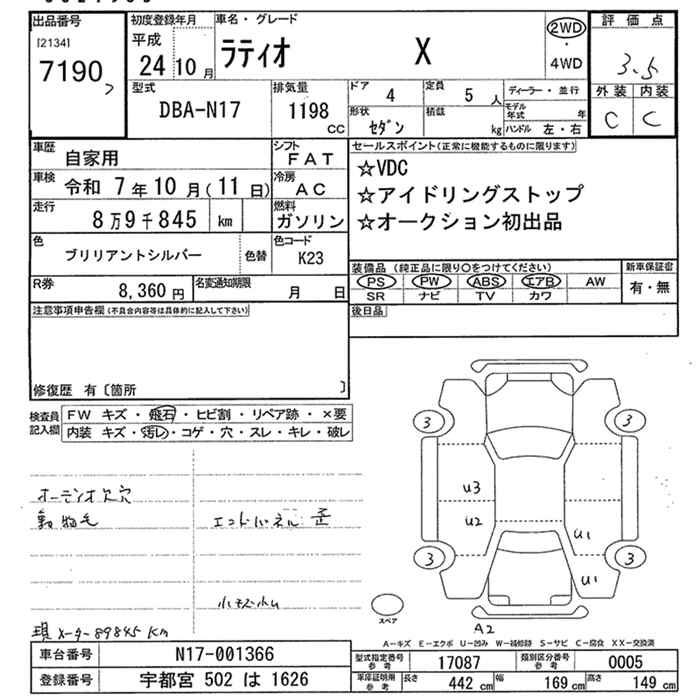 出品番号 初度登録年月 車名・グレード 2WD 評価点
[2134] 平成
7190 24年10月 ラティオ X ・ 4WD 3.5
型式 排気量 ドア 定員 ディーラー・並行 外装 内装
DBA-N17 1198 cc 4 5人 モデル年式 年 C C
形状 積載
セダン kg ハンドル 左・右
車歴 自家用 シフト FAT セールスポイント(正常に機能するものに限ります)
車検 令和 7年10月(11日) 冷房 AC ☆VDC
走行 8万9千845 km 燃料 ガソリン ☆アイドリングストップ
☆オークション初出品
色 ブリリアントシルバー 色替 色コード K23
装備品 (純正品に限り○をつけてください) 新車保証書
R券 8,360円 名変通知期限 月 日 PS PW ABS エアB AW 有・無
SR ナビ TV カワ
注意事項申告欄(不具合内容等は具体的に記入して下さい) 後日品
修復歴 有〔箇所 〕
検査員記入欄 FW キズ・飛石・ヒビ割・リペア跡・×要
内装 キズ・汚レ・コゲ・穴・スレ・キレ・破レ
3 3
U3
オーデオ欠穴
動物毛 エンドパネル歪 U2 U1
3 3
U1
小キズ小凹 スペア
A2
現メーター89845Km
A-キズ E-エクボ U-凹み W-補修跡 S-サビ C-腐食 XX-交換済
車台番号 N17-001366 型式指定番号 参考 17087 類別区分番号 参考 0005
登録番号 宇都宮 502 は 1626 車庫証明用 参考 長さ 442 cm 幅 169 cm 高さ 149 cm